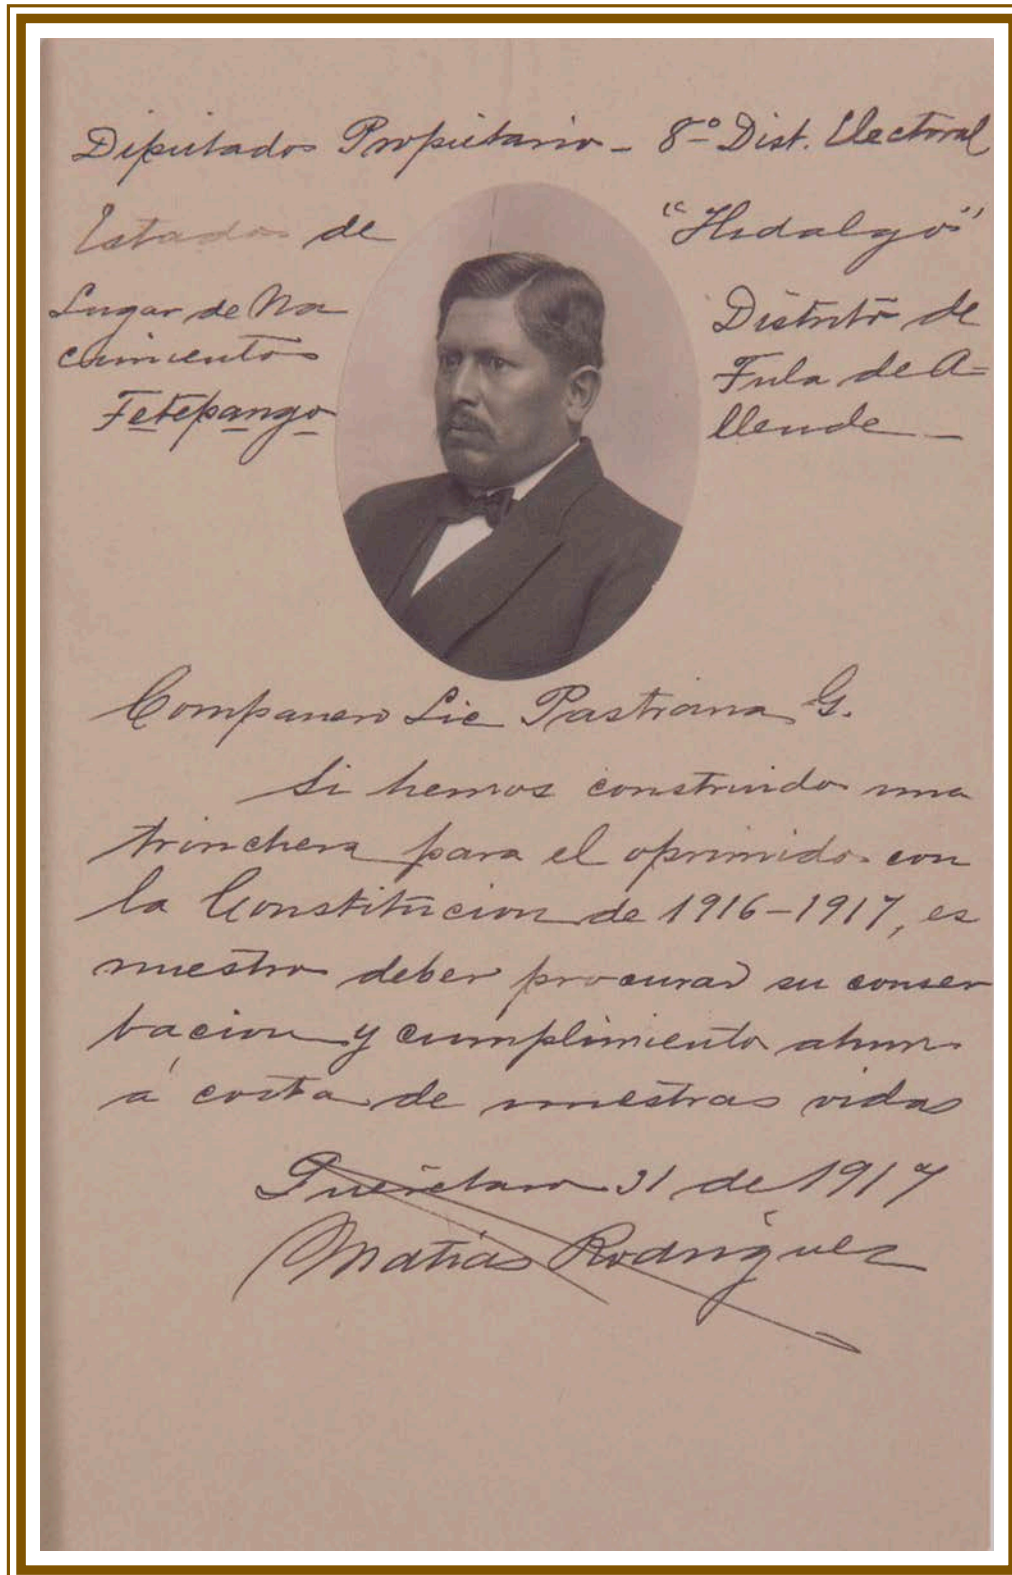 Diputado Propietario - 8º Dist. Electoral
Estado de "Hidalgo"
Lugar de Na
cimiento
Tetepango
Distrito de
Tula de A=
llende -
Companero Lic Pastrana G.
Si hemos construido una
trinchera para el oprimido con
la Constitucion de 1916-1917, es
nuestro deber procurar su conser
bacion y cumplimiento ahun
á costa de nuestras vidas
Querétaro 31 de 1917
Matias Rodriguez